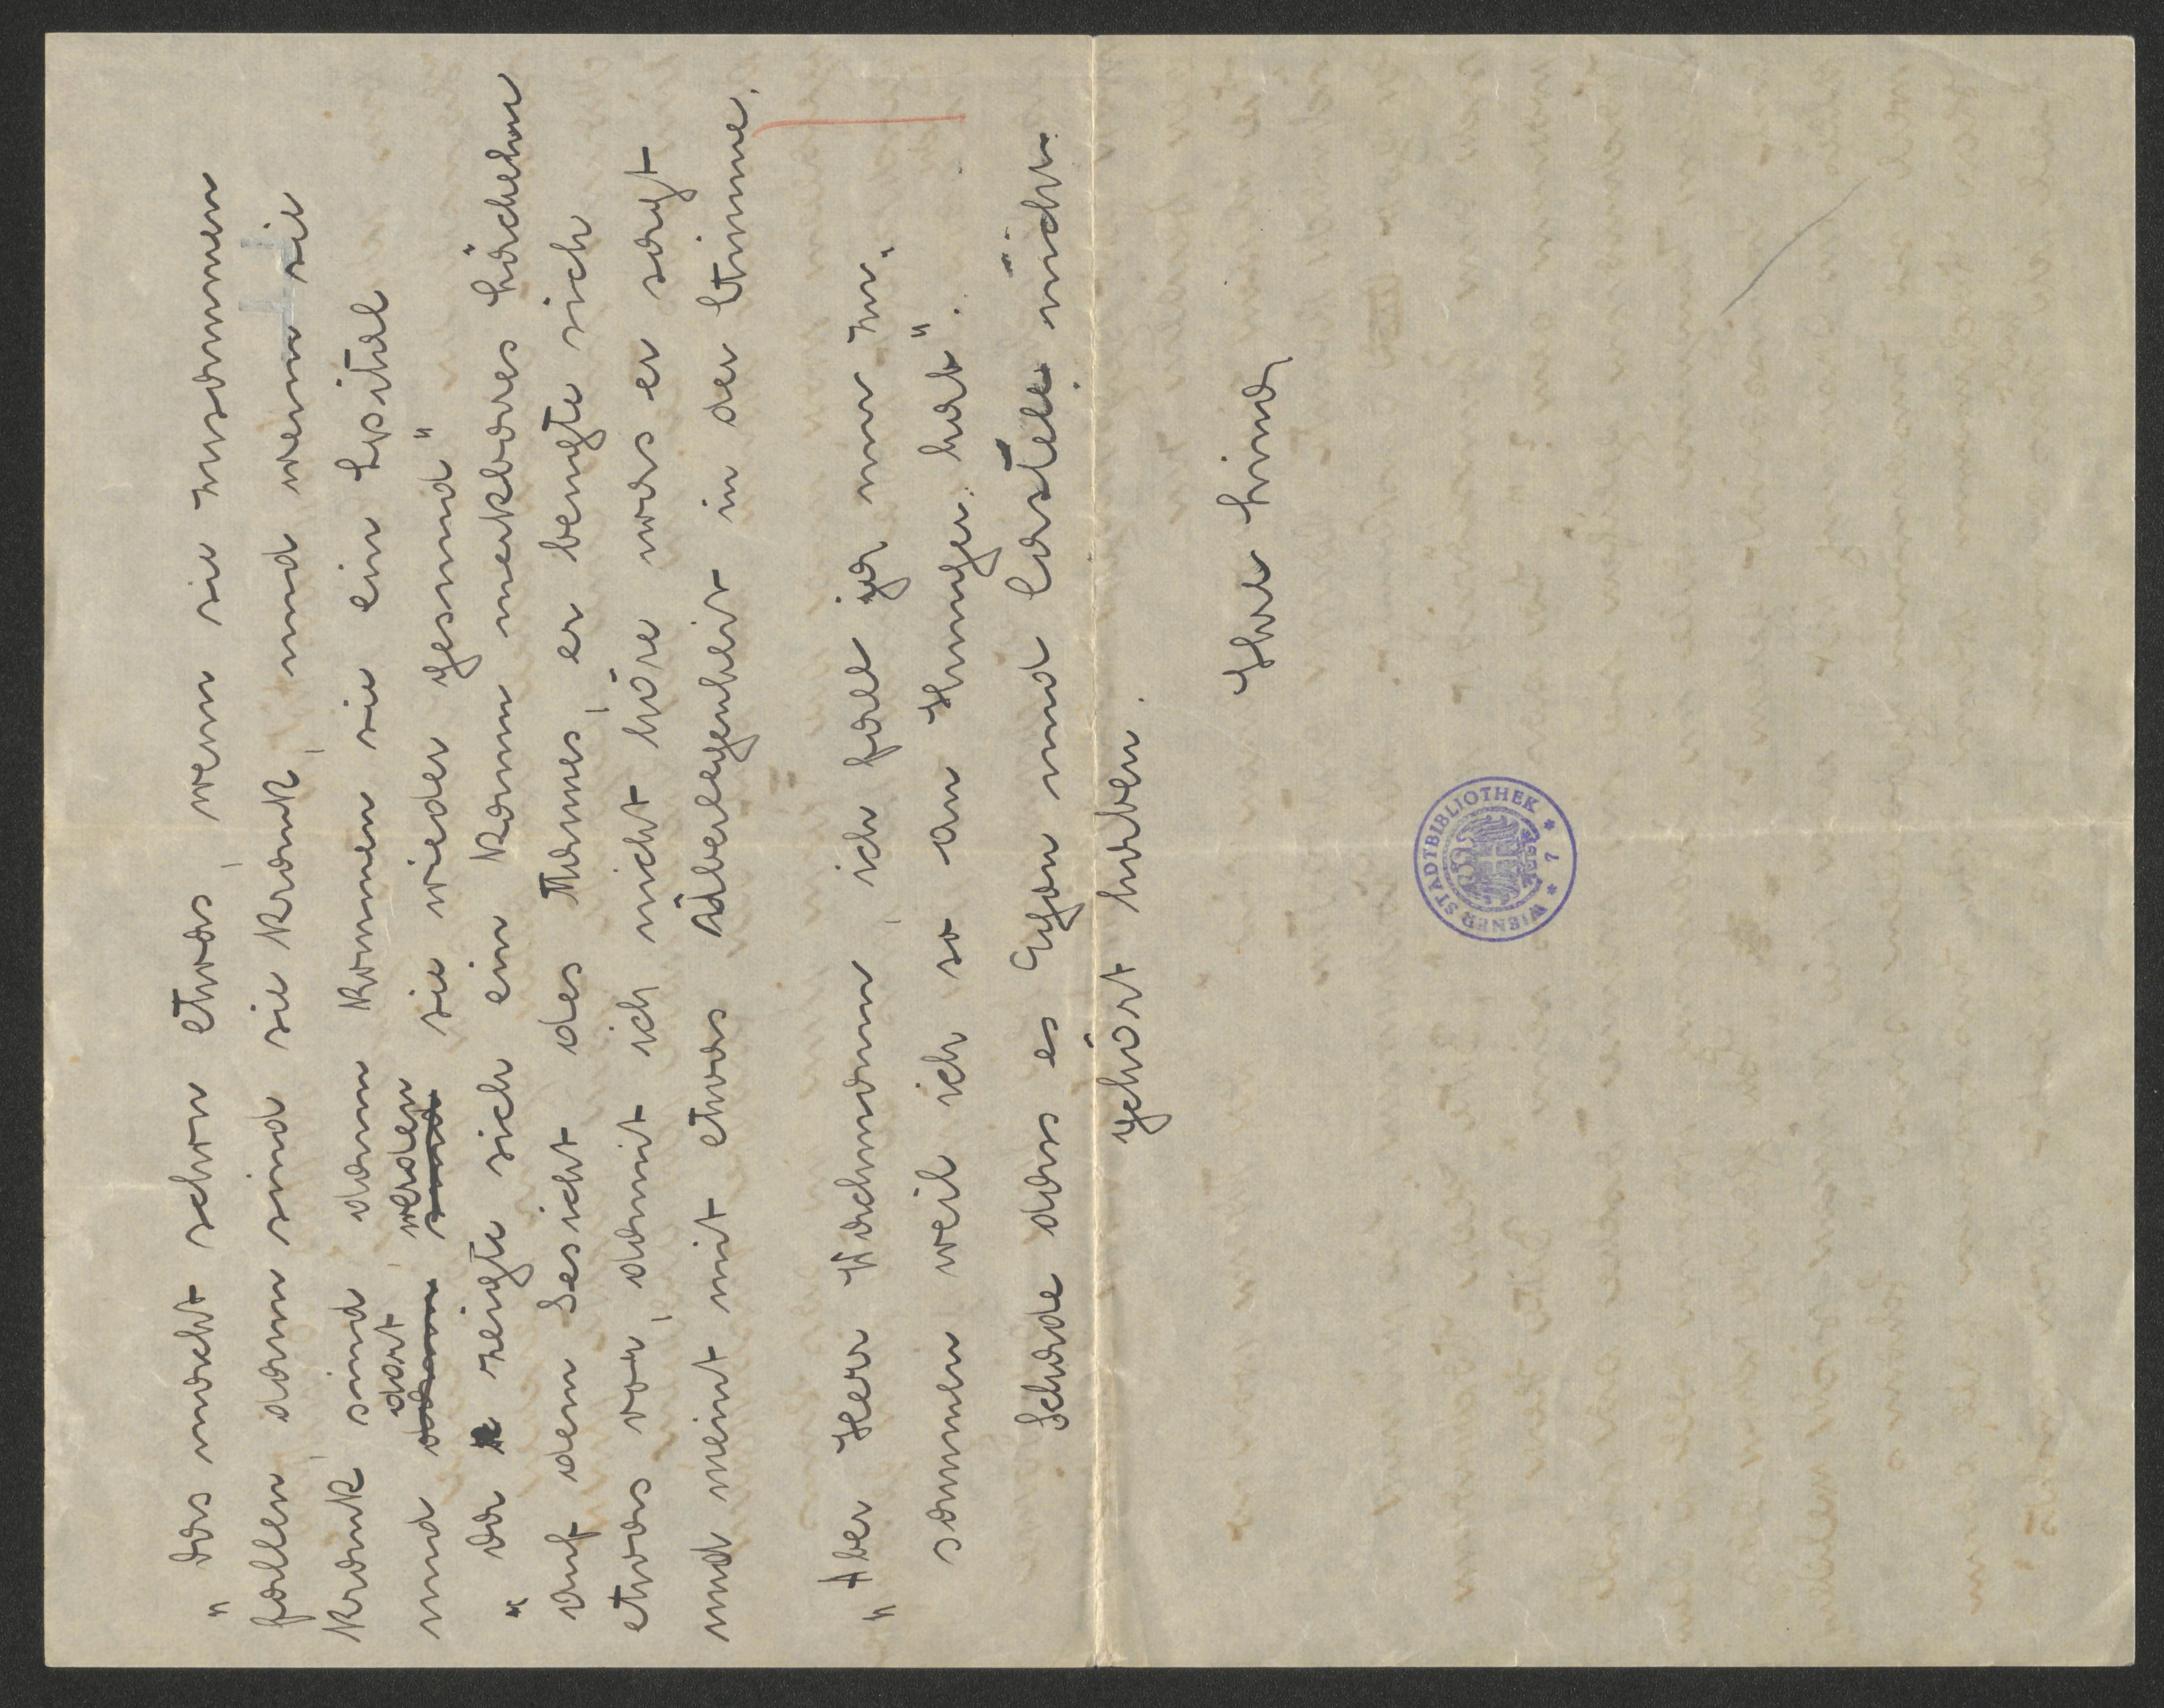 „Das macht schon etwas, wenn sie zusammen
fallen dann sind sie krank, und wenn sie
krank, sind dann kommen sie ein Spital
dort, werden
und dann sind sie wieder gesund"
„ da zeigte sich ein kaum merkbares Lächeln
auf dem Gesicht des Mannes, er beugte sich
etwas vor, damit ich nicht höre was er sagt
und meint mit etwas Überlegenheit in der Stimme.
„Aber Herr Wachmann, ich fall ja nur zu-
sammen weil ich so an Hunger hab".
Schade das es Egon und nicht
gehört haben.
Ihre Lina
WIENER STADTBIBLIOTHEK * 7 *